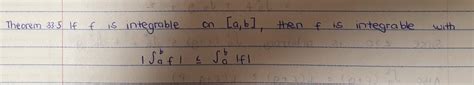 Theorem 33.5 If f is integrable on [a,b], then f is integrable with
|∫ₐᵇ f| ≤ ∫ₐᵇ |f|